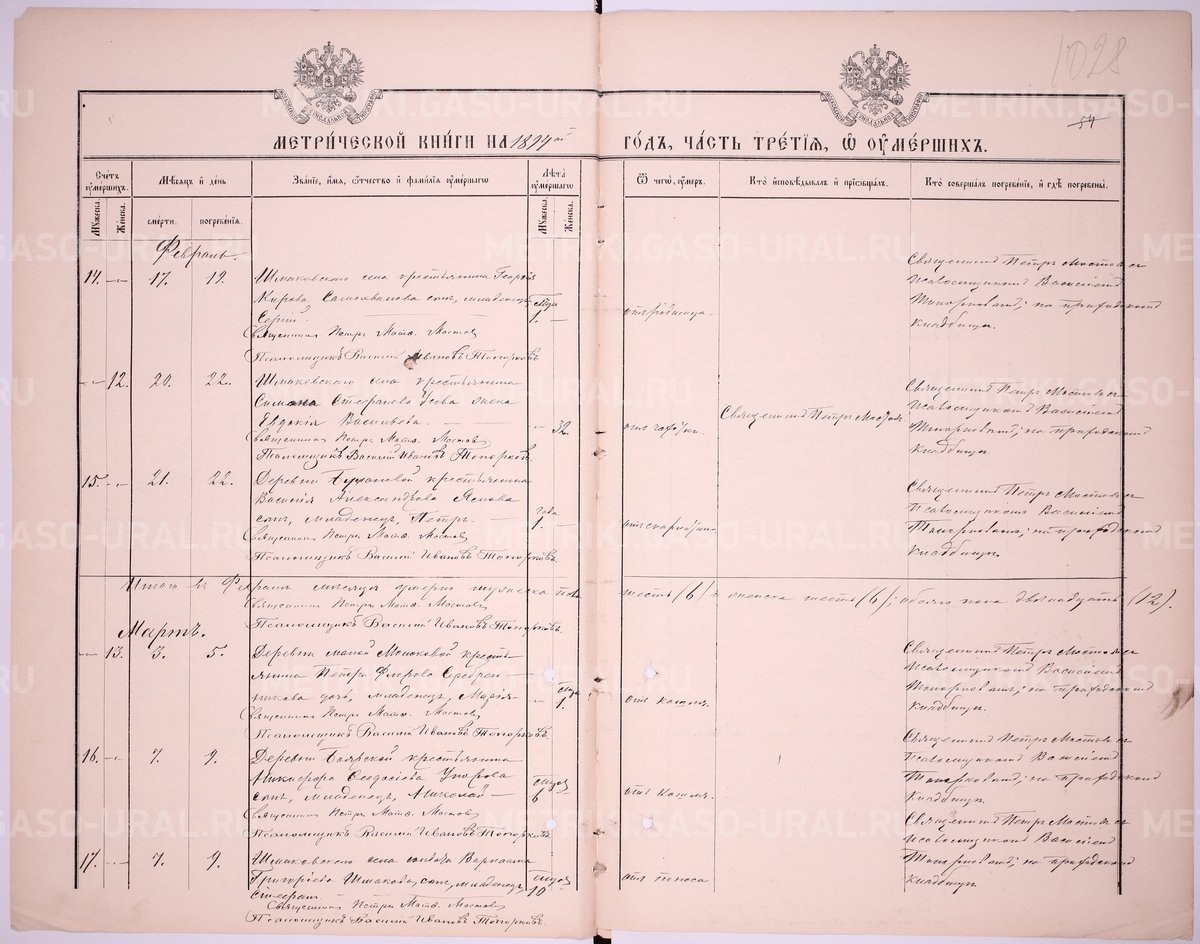 1028
54
МЕТРИ́ЧЕСКОЙ КНИ́ГИ НА 1894й ГО́ДЪ, ЧА́СТЬ ТРЕ́ТІѦ, Ѽ ОУМЕ́РШИХЪ.
Сче́тъ оуме́ршихъ.
Мꙋжеска.
Же́нска.
Мѣ́сѧцъ и де́нь
сме́рти.
погребе́нїѧ.
Зва́нїе, и́мѧ, о́тчество и фами́лїѧ оуме́ршагѡ
Лѣ́та оуме́ршагѡ
Мꙋжеска.
Же́нска.
Ѿ чегѡ̀ оу́меръ.
Кто̀ и҆сповѣ́дывалъ и прїѡбща́лъ.
Кто̀ соверша́лъ погребе́нїе, и гдѣ̀ погребены̀.
Февраль.
14. 17. 19. Шмаковскаго села крестьянина Георгія
Кирова сынъ, младенецъ
Сергій 1.
Священникъ Петръ Матѳ. Мостовъ
Псаломщикъ Василій Ивановъ Топорковъ.
Священникъ Петръ Мостовъ съ
псаломщикомъ Василіемъ
Топорковымъ; на приходскомъ
кладбищѣ.
12. 20. 22. Шмаковскаго села крестьянина
Симона Стефанова Усова жена
Евдокія Васильева. 32.
Священникъ Петръ Матѳ. Мостовъ
Псаломщикъ Василій Ивановъ Топорковъ.
отъ чахотки.
Священникъ Петръ Мостовъ.
Священникъ Петръ Мостовъ съ
псаломщикомъ Василіемъ
Топорковымъ; на приходскомъ
кладбищѣ.
15. 21. 22. Деревни крестьянина
Василія Александрова
сынъ, младенецъ, Петръ. года 1.
Священникъ Петръ Матѳ. Мостовъ
Псаломщикъ Василій Ивановъ Топорковъ.
отъ скарлатины
Священникъ Петръ Мостовъ съ
псаломщикомъ Василіемъ
Топорковымъ; на приходскомъ
кладбищѣ.
Итого въ Февралѣ мѣсяцѣ умерло мужеска пола шесть (6) и женска шесть (6); обоего пола двенадцать (12).
Священникъ Петръ Матѳ. Мостовъ
Псаломщикъ Василій Ивановъ Топорковъ.
Мартъ.
13. 3. 5. Деревни малой крестья-
янина Петра Фирова Серебрен-
никова дочь, младенецъ, Марія 1.
Священникъ Петръ Матѳ. Мостовъ
Псаломщикъ Василій Ивановъ Топорковъ.
отъ кашля.
Священникъ Петръ Мостовъ съ
псаломщикомъ Василіемъ
Топорковымъ; на приходскомъ
кладбищѣ.
16. 7. 9. Деревни Боярской крестьянина
Никифора Ѳеодосіева Упорова
сынъ, младенецъ, Николай 6
Священникъ Петръ Матѳ. Мостовъ
Псаломщикъ Василій Ивановъ Топорковъ.
отъ кашля.
Священникъ Петръ Мостовъ съ
псаломщикомъ Василіемъ
Топорковымъ; на приходскомъ
кладбищѣ.
17. 7. 9. Шмаковскаго села солдата Варлаама
Григоріева Шмакова, сынъ, младенецъ,
Стефанъ 10
Священникъ Петръ Матѳ. Мостовъ
Псаломщикъ Василій Ивановъ Топорковъ.
отъ поноса
Священникъ Петръ Мостовъ съ
псаломщикомъ Василіемъ
Топорковымъ; на приходскомъ
кладбищѣ.
METRIKI.GASO-URAL.RU